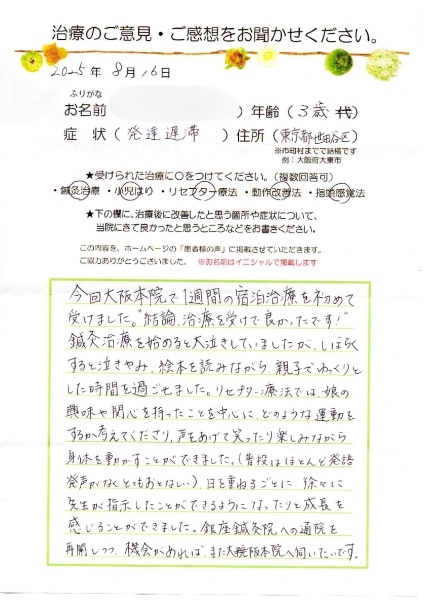 治療のご意見・ご感想をお聞かせください。
2025年 8月 16日
ふりがな
お名前 ） 年齢（ 3歳 代）
症 状（ 発達遅滞 ） 住所（東京都世田谷区）
※市町村までで結構です
例：大阪府大東市
★受けられた治療に○をつけてください。（複数回答可）
・鍼灸治療 ・小児はり ・リセプター療法 ・動作改善法 ・指頭感覚法
★下の欄に、治療後に改善したと思う箇所や症状について、
当院にきて良かったと思うところなどをお書きください。
この内容を、ホームページの「患者様の声」に掲載させていただきます。
ご協力ありがとうございました。 ※お名前はイニシャルで掲載します
今回大阪本院で1週間の宿泊治療を初めて
受けました。"結論、治療を受けて良かったです！"
鍼灸治療を始めると大泣きしていましたが、しばらく
すると泣きやみ、絵本を読みながら、親子でゆっくりと
した時間を過ごせました。リセプター療法では、娘の
興味や関心を持ったことを中心に、どのような運動を
するか考えてくださり、声をあげて笑ったり楽しみながら
身体を動かすことができました。（普段はほとんど発語
発声がなく、とてもおとなしい）、日を重ねるごとに、徐々に
先生が指示したことができるようになったりと成長を
感じることができました。銀座鍼灸院への通院を
再開しつつ、機会があれば、また大阪本院へ伺いたいです。